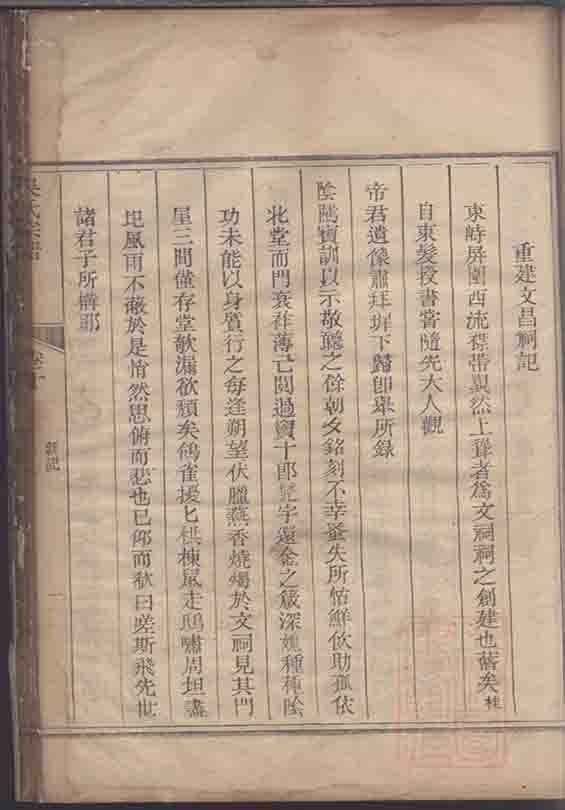 重建文昌祠記
東峙屏圍西流襟帶翼然上聳者為文祠祠之創建也舊矣桂
自束髮授書嘗隨先大人觀
帝君遺像肅拜墀下歸即舉所錄
陰隲寶訓以示敬聽之餘朝夕銘刻不幸蚤失所怙鮮伙助孤依
北堂而門衰祚薄己閱過竇十郎 字還念之箴深 種種陰
功未能以身質行之每逢朔望伏臘爇香燒燭於文祠見其門
屋三間僅存堂欹漏欲頹矣鴿雀擾匕栱棟鼠走鴟嘯周坦盡
圯風雨不蔽於是悄然思俯而悲也已仰而歎曰嗟斯飛先世
諸君子所構耶
卷十
記
一